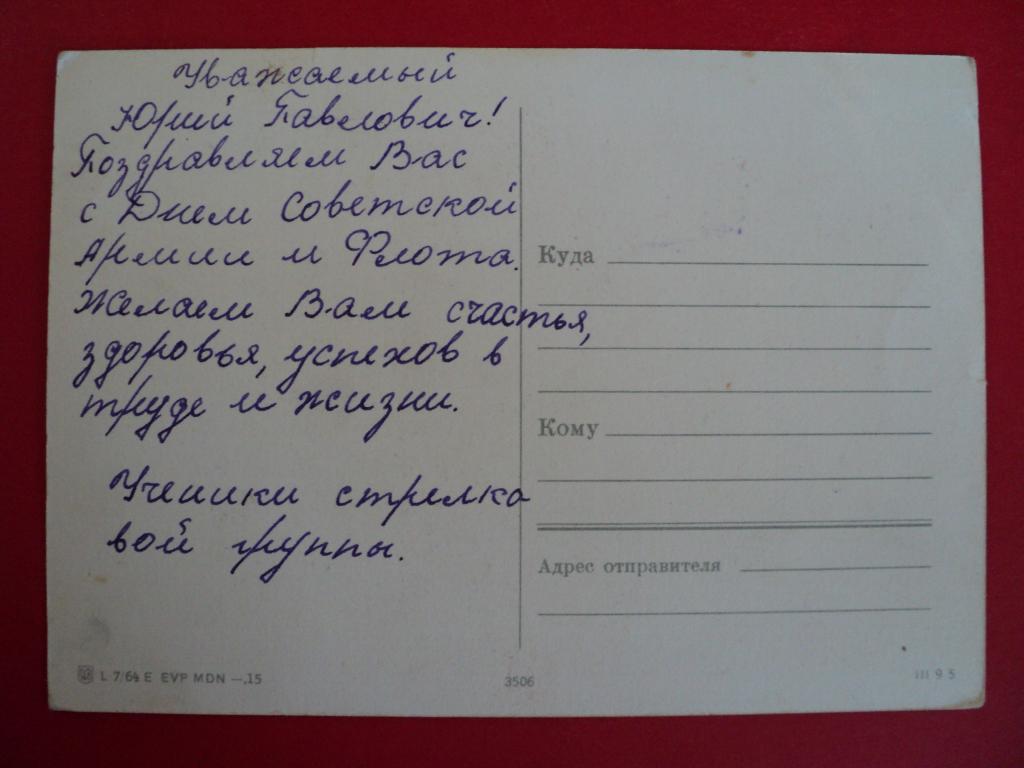 Уважаемый
Юрий Павлович!
Поздравляем Вас
с Днем Советской
Армии и Флота.
Желаем Вам счастья,
здоровья, успехов в
труде и жизни.
Ученики стрелко
вой группы.
Куда
Кому
Адрес отправителя
L 7/64 E EVP MDN —,15
3506
III 9 5